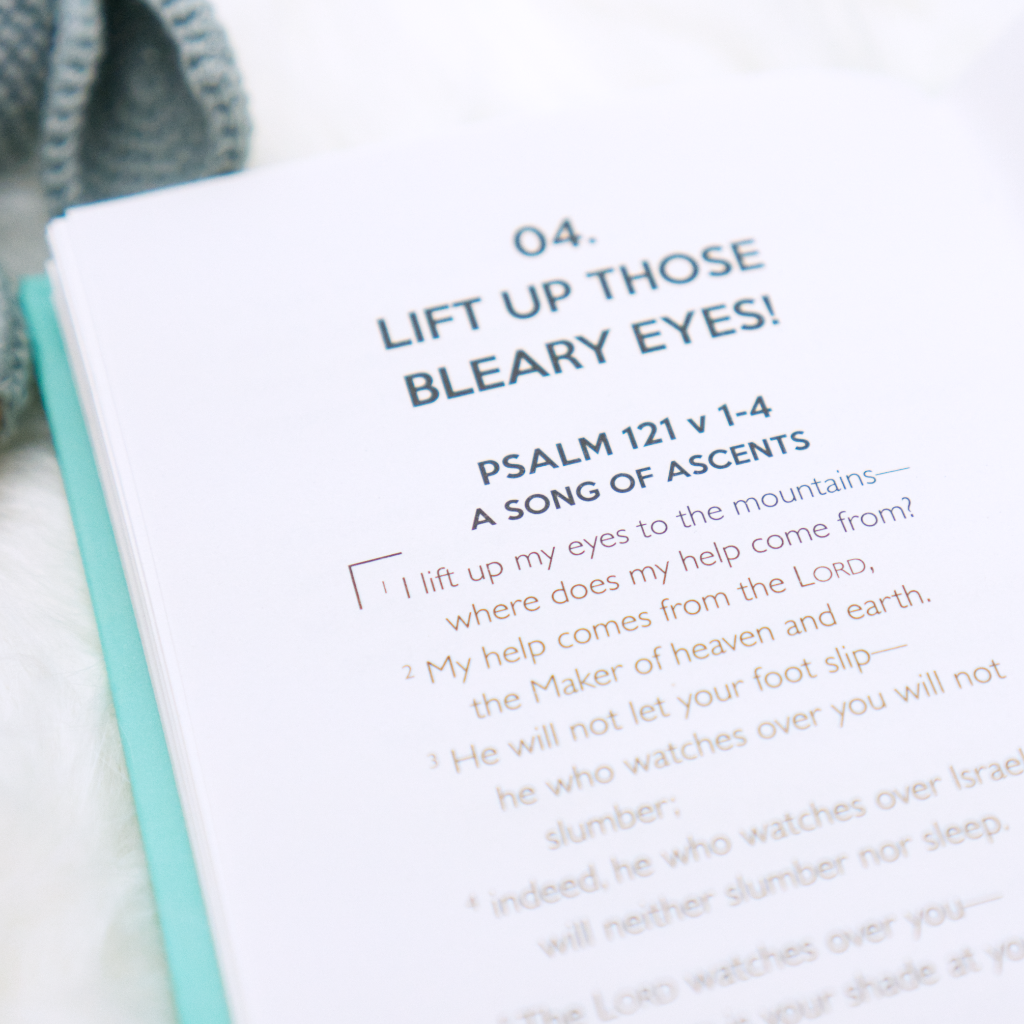 04.
LIFT UP THOSE
BLEARY EYES!
PSALM 121 v 1-4
A SONG OF ASCENTS
1 I lift up my eyes to the mountains—
where does my help come from?
2 My help comes from the LORD,
the Maker of heaven and earth.
3 He will not let your foot slip—
he who watches over you will not
slumber;
4 indeed, he who watches over Israel
will neither slumber nor sleep.
The LORD watches over you—
your shade at